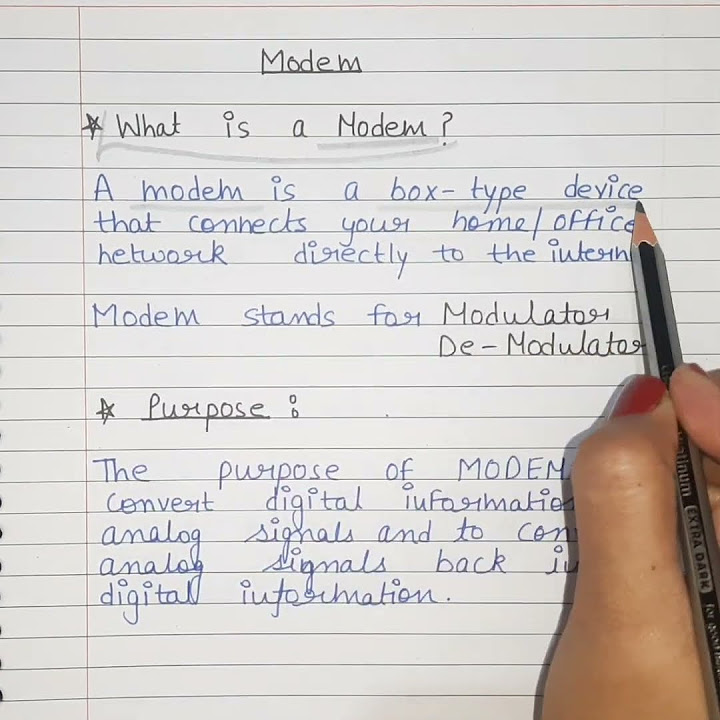 Modem
* What is a Modem?
A modem is a box-type device
that connects your home/office
network directly to the
Modem stands for Modulator
De-Modulator
* Purpose:
The purpose of MODEM
convert digital
analog signals and to
analog signals back
digital information.
EXTRA DARK